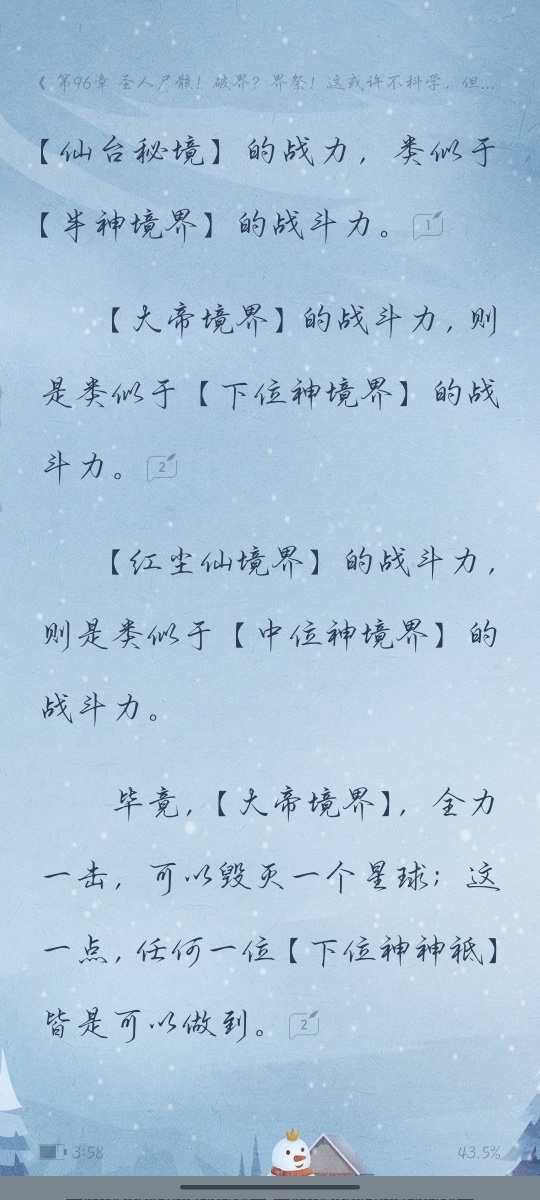 《 第96章 圣人尸骸！破界？界祭！这或许不科学，但...
【仙台秘境】的战力，类似于
【半神境界】的战斗力。 1
【大帝境界】的战斗力，则
是类似于【下位神境界】的战
斗力。 2
【红尘仙境界】的战斗力，
则是类似于【中位神境界】的
战斗力。
毕竟，【大帝境界】，全力
一击，可以毁灭一个星球；这
一点，任何一位【下位神神祗】
皆是可以做到。 2
3:58
43.5%